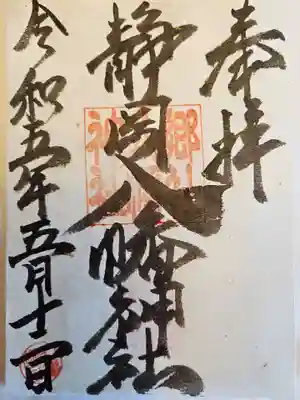 奉拝
静岡八幡神社
令和五年五月十二日